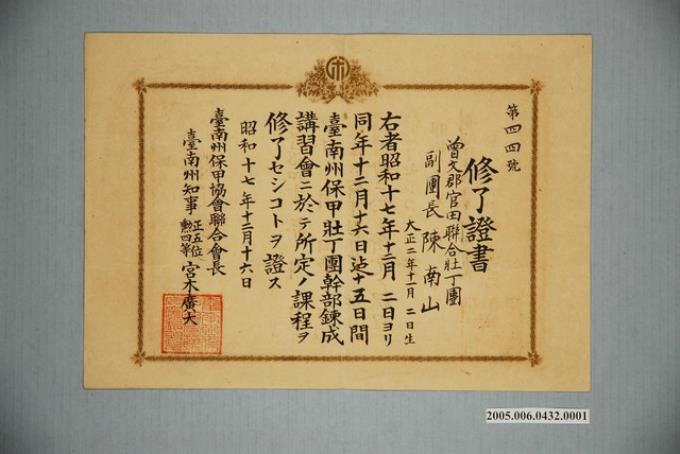 第四四號
修了證書
曾文郡官田聯合壯丁團
副團長 陳南山
大正二年十一月二日生
右者昭和十七年十二月二日ヨリ
同年十二月十六日迄十五日間
臺南州保甲壯丁團幹部鍊成
講習會ニ於テ所定ノ課程ヲ
修了セシコトヲ證ス
昭和十七年十二月十六日
臺南州保甲協會聯合會長
臺南州知事 正五位勲四等 宮木廣大
2005.006.0432.0001